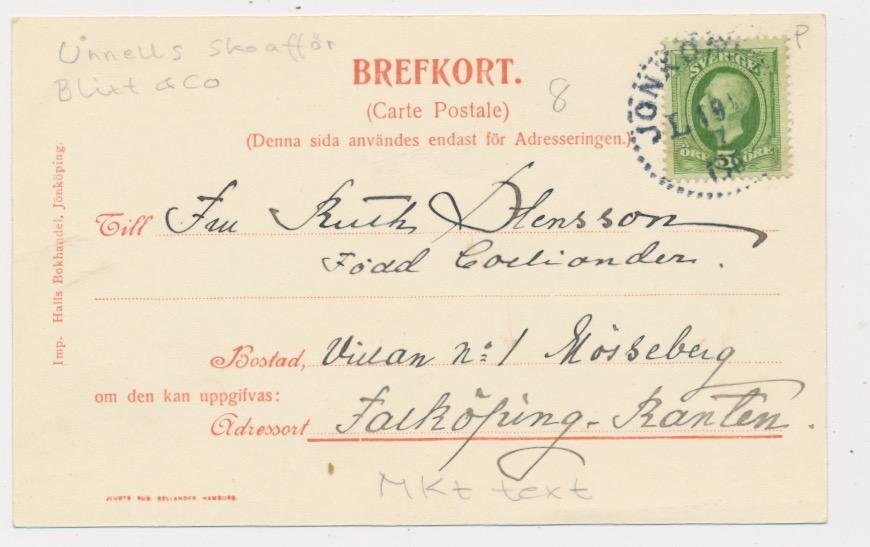 Unnells skoaffär
Blixt & Co
BREFKORT.
(Carte Postale)
(Denna sida användes endast för Adresseringen.)
8
P
SVERIGE
5
ÖRE ÖRE
JÖNKÖ
Imp. Halls Bokhandel, Jönköping.
Till Fru Ruth
Född Coeliander.
Bostad, Villan No: 1 Mösseberg
om den kan uppgifvas:
Adressort Falköping-Ranten.
Mkt text